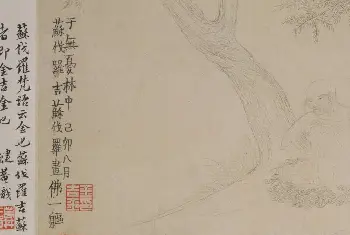 于無憂林中己卯八月
蘇伐羅吉蘇伐羅畫佛一軀
蘇伐羅梵語云金也蘇伐羅吉蘇
者即金吉金也